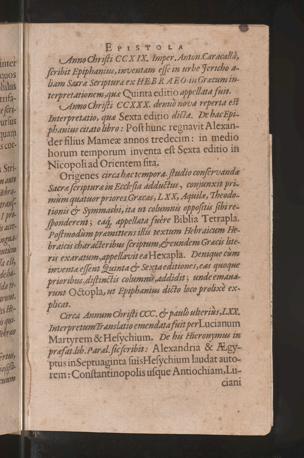 EPISTOLA
Anno Christi CCXIX. Imper. Anton. Caracallâ,
scribit Epiphanius, inventam esse in urbe Jericho a-
liam Sacræ Scripturæ ex HEBRÆO in Græcum in-
terpretationem, quæ Quinta editio appellata fuit.
Anno Christi CCXXX. denuò nova reperta est
Interpretatio, quæ Sexta editio dicta. De hac Epi-
phanius citato libro: Post hunc regnavit Alexan-
der filius Mameæ annos tredecim: in medio
horum temporum inventa est Sexta editio in
Nicopoli ad Orientem sita.
Origenes circa hæc tempora studio conservandæ
Sacræ scripturæ in Ecclesia adductus, conjunxit pri-
mùm quatuor priores Græcas, LXX, Aquilæ, Theodo-
tionis & Symmachi, ita ut columnis oppositis sibi re-
sponderent; eaq́; appellata fuêre Biblia Tetrapla.
Postmodùm præmittens illis textum Hebraicum He-
braicis characteribus scriptum, & eundem Græcis lite-
ris exaratum, appellavit ea Hexapla. Denique cùm
inventa essent Quinta & Sexta editiones, eas quoque
prioribus, distinctis columnis, addidit; unde emana-
runt Octopla, ut Epiphanius dicto loco prolixè ex-
plicat.
Circa Annum Christi CCC. & paulò ulteriùs, LXX.
Interpretum Translatio emendata fuit per Lucianum
Martyrem & Hesychium. De his Hieronymus in
præfat. lib. Paral. sic scribit: Alexandria & Ægy-
ptus in Septuaginta suis Hesychium laudat auto-
rem: Constantinopolis usque Antiochiam, Lu-
ciani